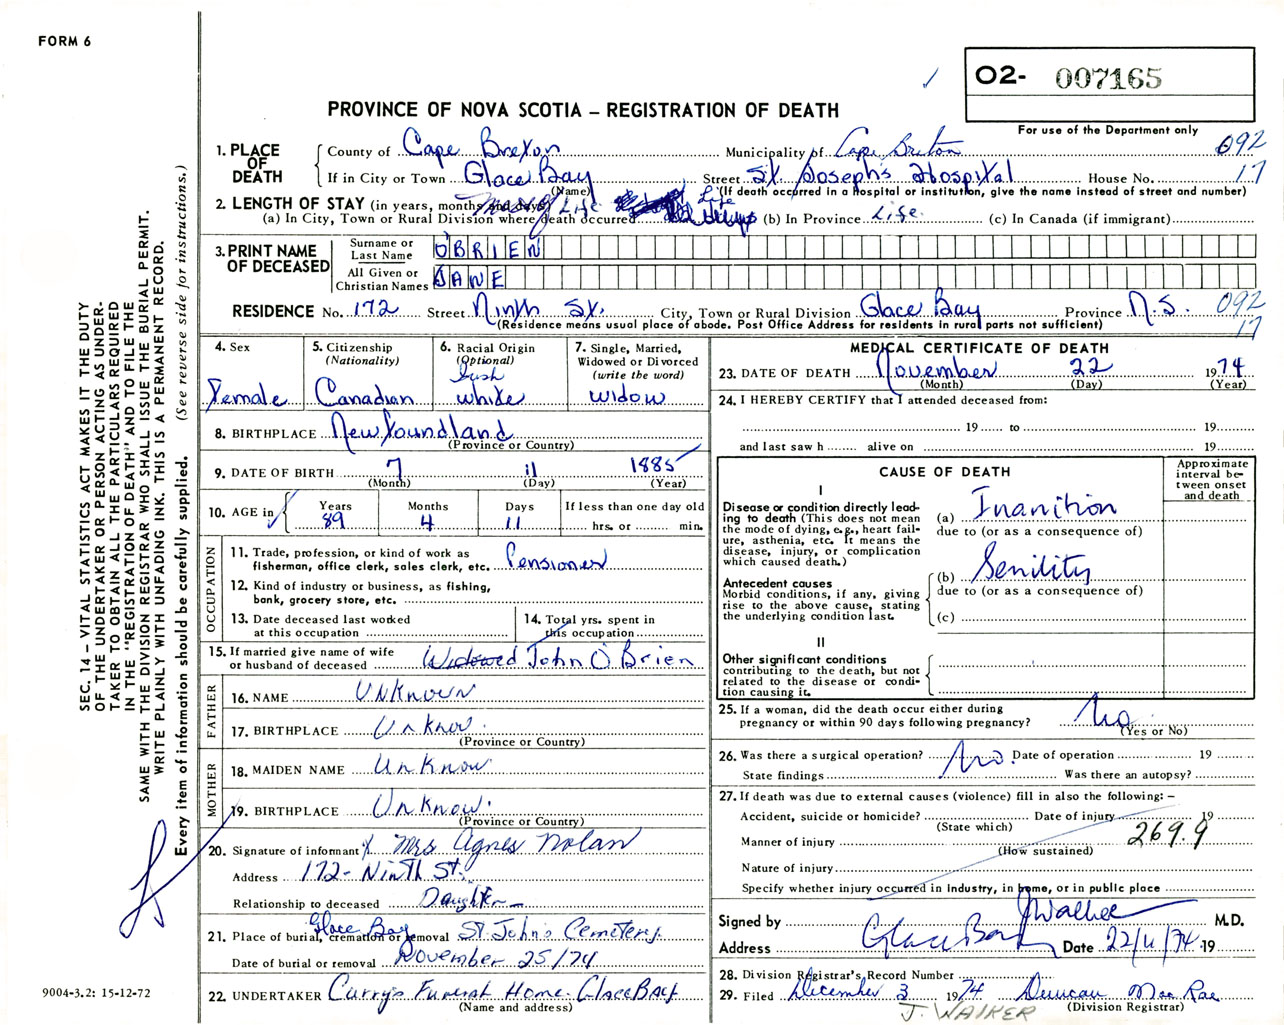 FORM 6
O2- 007165
PROVINCE OF NOVA SCOTIA – REGISTRATION OF DEATH
For use of the Department only
1. PLACE OF DEATH
County of Cape Breton Municipality of Cape Breton 092
If in City or Town Glace Bay Street St. Joseph's Hospital House No. 17
(Name) (If death occurred in a hospital or institution, give the name instead of street and number)
2. LENGTH OF STAY (in years, months and days) Life
(a) In City, Town or Rural Division where death occurred Life (b) In Province Life (c) In Canada (if immigrant)
3. PRINT NAME OF DECEASED
Surname or Last Name O'BRIEN
All Given or Christian Names JANE
RESIDENCE No. 172 Street Ninth St. City, Town or Rural Division Glace Bay Province N.S. 092
(Residence means usual place of abode. Post Office Address for residents in rural parts not sufficient) 17
4. Sex
Female
5. Citizenship
(Nationality)
Canadian
6. Racial Origin
(Optional)
Irish
white
7. Single, Married,
Widowed or Divorced
(write the word)
widow
8. BIRTHPLACE Newfoundland
(Province or Country)
9. DATE OF BIRTH 7 11 1885
(Month) (Day) (Year)
10. AGE in
Years Months Days If less than one day old
89 4 11 hrs. or min.
OCCUPATION
11. Trade, profession, or kind of work as
fisherman, office clerk, sales clerk, etc. Pensioner
12. Kind of industry or business, as fishing,
bank, grocery store, etc.
13. Date deceased last worked
at this occupation
14. Total yrs. spent in
this occupation
15. If married give name of wife
or husband of deceased Widowed John O'Brien
FATHER
16. NAME Unknown
17. BIRTHPLACE Unknow.
(Province or Country)
MOTHER
18. MAIDEN NAME Unknow
19. BIRTHPLACE Unknow.
(Province or Country)
20. Signature of informant X Mrs Agnes Nolan
Address 172- Ninth St.
Relationship to deceased Daughter
Glace Bay
21. Place of burial, cremation or removal St. John's Cemetery.
Date of burial or removal November 25/74
22. UNDERTAKER Curry's Funeral Home. Glace Bay
(Name and address)
MEDICAL CERTIFICATE OF DEATH
23. DATE OF DEATH November 22 1974
(Month) (Day) (Year)
24. I HEREBY CERTIFY that I attended deceased from:
19 to 19
and last saw h alive on 19
CAUSE OF DEATH
Approximate
interval be-
tween onset
and death
I
Disease or condition directly lead-
ing to death (This does not mean
the mode of dying, e.g., heart fail-
ure, asthenia, etc. It means the
disease, injury, or complication
which caused death.)
(a) Inanition
due to (or as a consequence of)
Antecedent causes
Morbid conditions, if any, giving
rise to the above cause, stating
the underlying condition last.
(b) Senility
due to (or as a consequence of)
(c)
II
Other significant conditions
contributing to the death, but not
related to the disease or condi-
tion causing it.
25. If a woman, did the death occur either during
pregnancy or within 90 days following pregnancy? No
(Yes or No)
26. Was there a surgical operation? No. Date of operation 19
State findings Was there an autopsy?
27. If death was due to external causes (violence) fill in also the following: –
Accident, suicide or homicide? Date of injury 19
(State which)
Manner of injury 269.9
(How sustained)
Nature of injury
Specify whether injury occurred in industry, in home, or in public place
Signed by J Walker M.D.
Address Glace Bay Date 22/11/74 19
28. Division Registrar's Record Number
29. Filed December 3 1974 Duncan MacRae
(Division Registrar)
J. WALKER
SEC. 14 – VITAL STATISTICS ACT MAKES IT THE DUTY
OF THE UNDERTAKER OR PERSON ACTING AS UNDER-
TAKER TO OBTAIN ALL THE PARTICULARS REQUIRED
IN THE "REGISTRATION OF DEATH" AND TO FILE THE
SAME WITH THE DIVISION REGISTRAR WHO SHALL ISSUE THE BURIAL PERMIT.
WRITE PLAINLY WITH UNFADING INK. THIS IS A PERMANENT RECORD.
Every item of information should be carefully supplied. (See reverse side for instructions.)
9004-3.2: 15-12-72